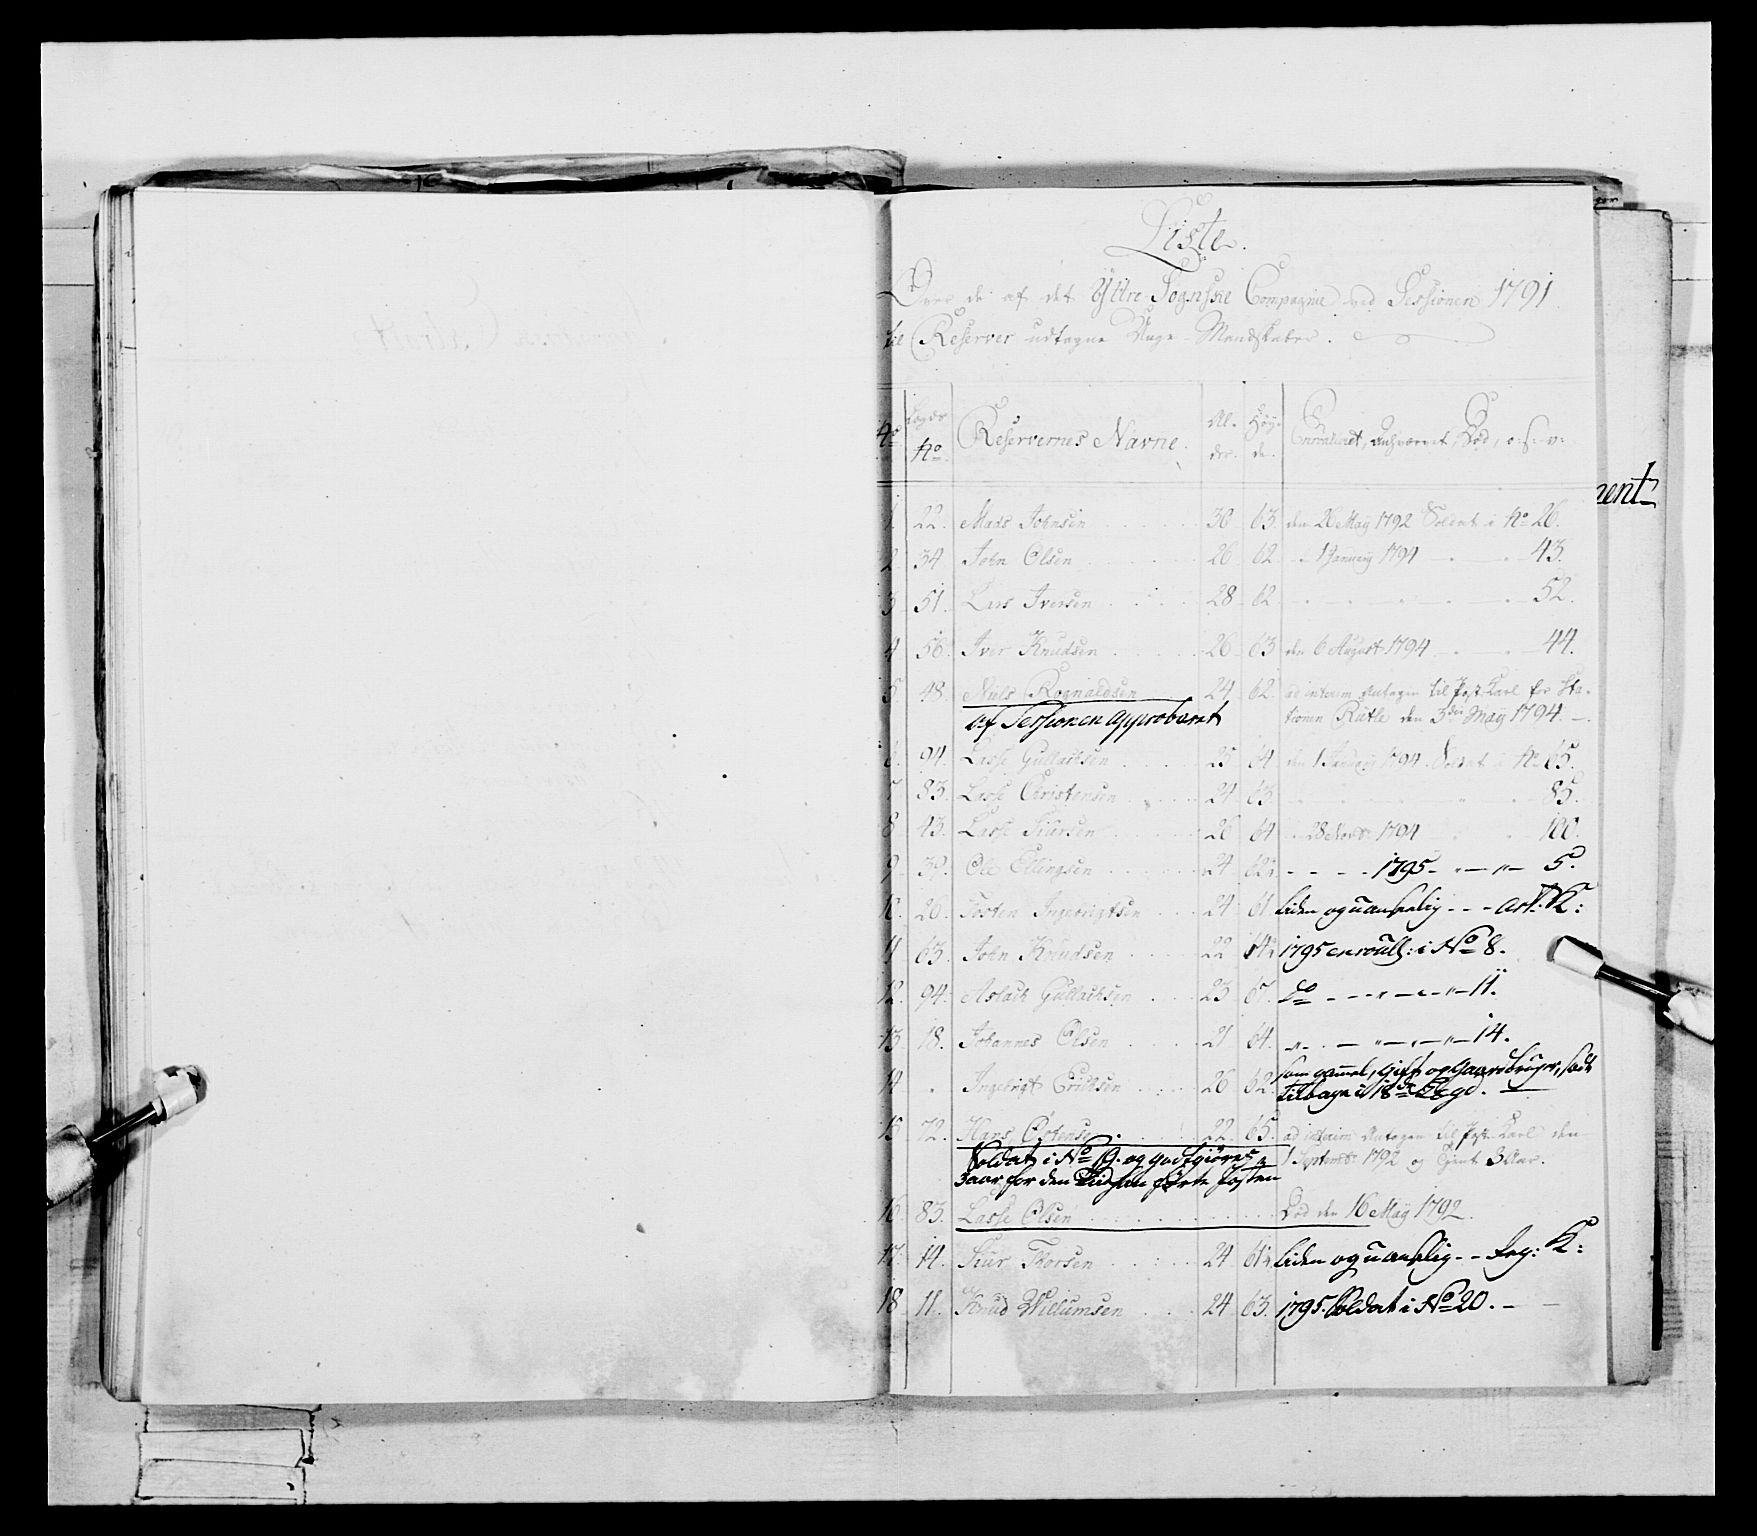 Liste.
Over de af det Ÿttre Sognske Compagnie ved Sessionen 1791
til Reserver udtagne Unge Mandskaber.
No Lægds No Reservernes Navne. Al-der. Høÿ-de. Enrouleret, Død, o:s:v:
1. 22. Mads Johnsen 30 63. den 26 Maÿ 1792 Soldat i No 26.
2. 34 John Olsen 26 62. 1 Januarÿ 1794 43.
3 51. Lars Iversen 28 62 52.
4 56. Iver Knudsen 26 63 den 6 August 1794 44.
5 48. Niels Rognaldsen 24 62. ad interim Antagen til Post Karl for Sta-
af Sessionen approberet tionen Rutle den 3die Maÿ 1794.
6. 94. Lasse Gullachsen 25 64 den 1 Januarÿ 1794 Soldat i No 65.
7 83. Lasse Christensen 24 63 85.
8 43. Lasse Siursen 26 64 28 1794 100.
9 39. Ole Ellingsen 24 62½ 1795 5.
10. 20. Tosten Ingebrigtsen 24 61 liden og uanseelig - - - Art: K:
11 63. John Knudsen 22 1795 enroull: i No 8.
12. 94. Aslach Gullachsen 23 67. do 11.
13 18. Johannes Olsen 21 64. 14.
14 Ingebrigt Erichsen 26 62. som gammel, gift og Gaardbruger, sadt
tilbage i 18de Lægd.
15 72. Hans 22. 65. ad interim Antagen til Post Karl den
Soldat i No og godtgiøres 1 Septembr 1792 og tient 3 Aar.
3 aar for den Tiid han førte Posten
16. 83. Lasse Olsen Død den 16 Maÿ 1792.
17. 14. Siur Thorsen 24 61½ liden og uanseelig - - K:
18 11. Knud Willumsen 24 63. 1795 Soldat i No 20.
nent